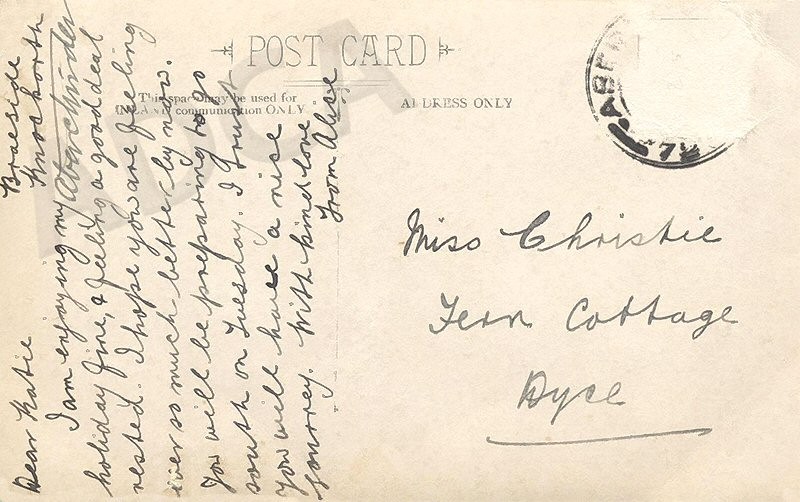 POST CARD
This space may be used for
INLAND communication ONLY.
ADDRESS ONLY
Braeside
Knockorth
Aberchirder
Dear Katie
I am enjoying my
holiday fine, & feeling a good deal
rested. I hope you are feeling
ever so much better by now.
You will be preparing to go
south on Tuesday. I trust
you will have a nice
journey. With kind love
from Alice
Miss Christie
Fern Cottage
Dyce